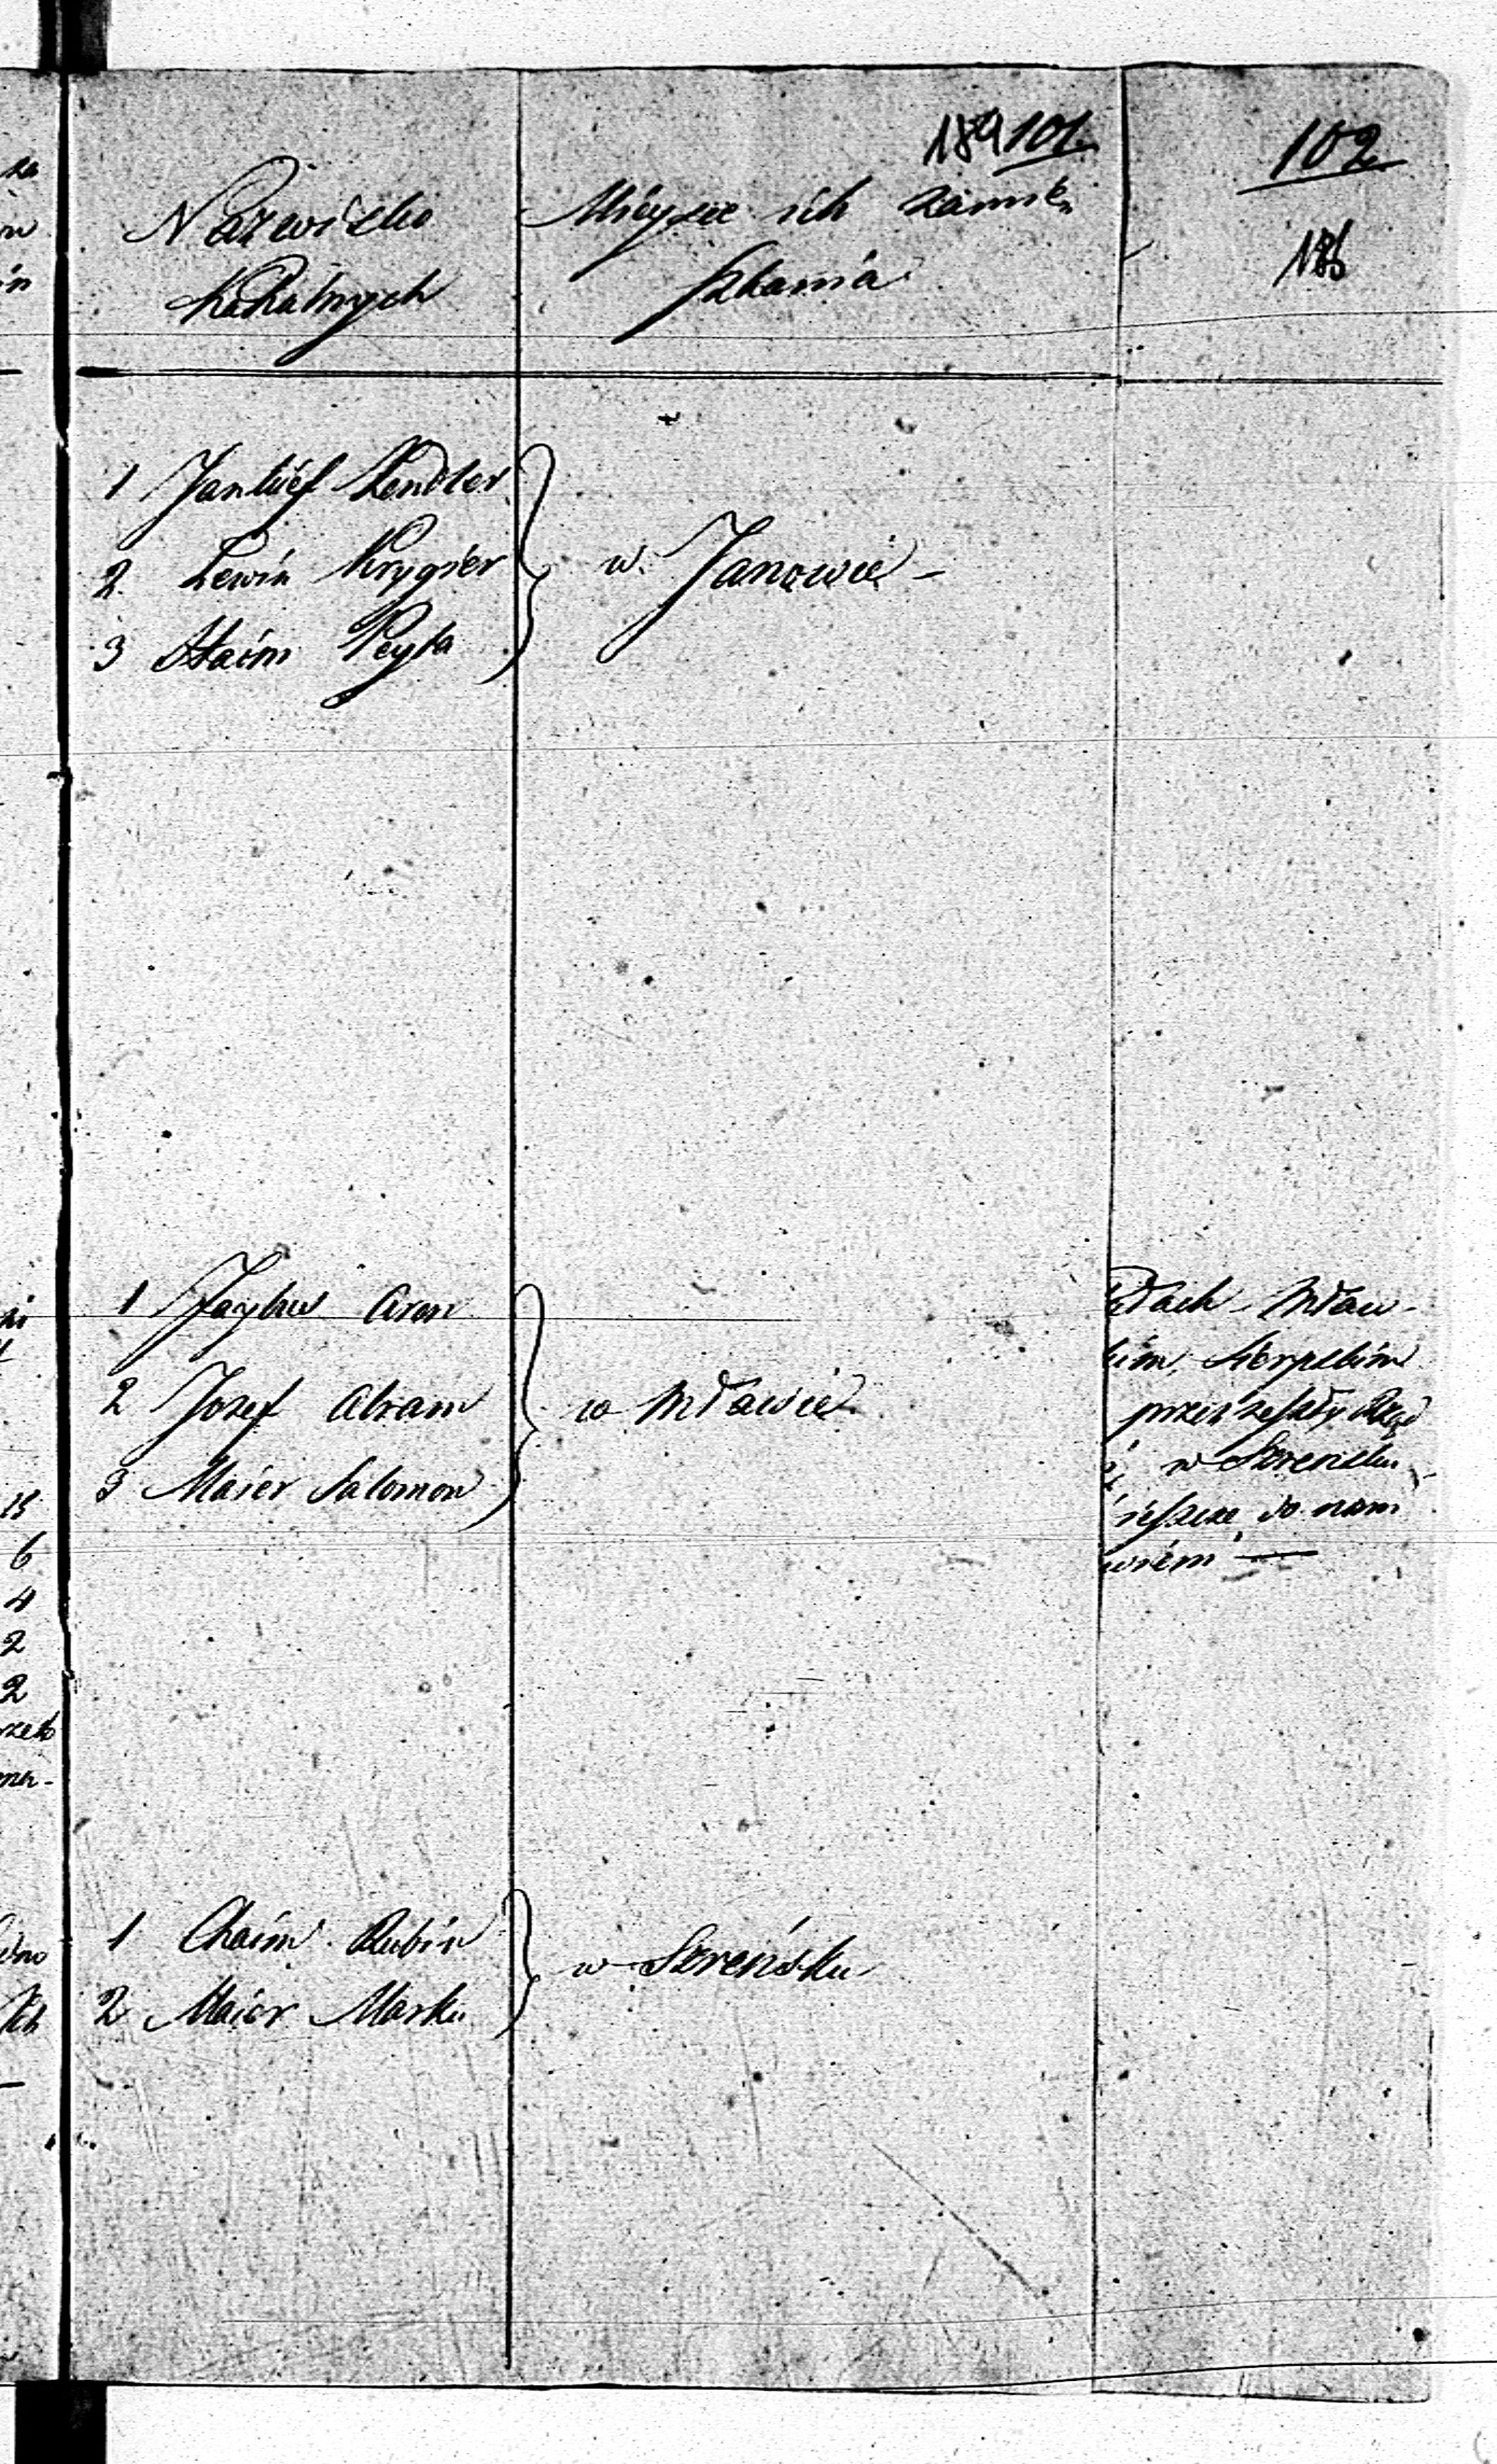 189 101
102
186
Nazwiska
Kahalnych
Mieysce ich zamie
szkania
1 Kendler
2. Lewin Krygier
3 Haim Peyta
w Janowie -
1 Aron
2 Jozef Abram
3 Maier Salomon
w Mławie
dach Mław-
kim, Sierpskim
przez zeszły Rząd
w Szrensku
ieszcze do nam
wiem —
1 Chaim Rubin
2 Maier Marku
w Szreńsku
6
4
2
2